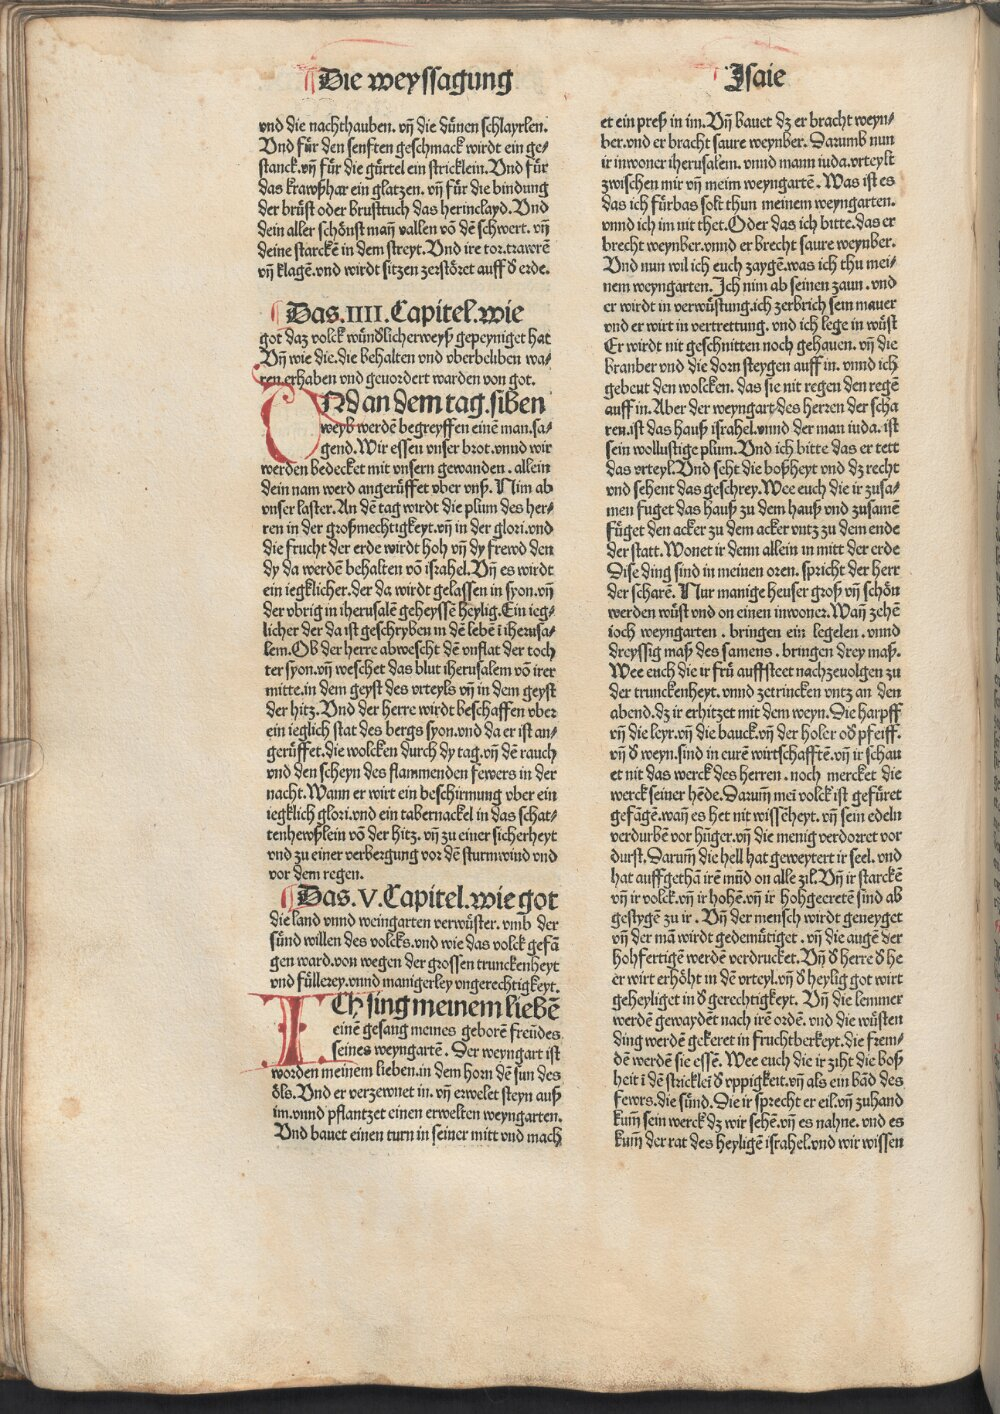 Die weyssagung
Jsaie
vnd die nachthauben. vn̄ die dünen schlayrlen.
Vnd für den senften geschmack wirdt ein ge⸗
stanck. vn̄ für die gürtel ein stricklein. Vnd für
das krawßhar ein glatzen. vn̄ für die bindung
der brüst oder brusttuch das herinclayd. Vnd
dein aller schönst man̄ vallen võ dẽ schwert. vn̄
deine starckẽ in dem streyt. Vnd ire tor. trawrẽ
vn̄ klagẽ. vnd wirdt sitzen zerstöret auff đ erde.
Das .IIII. Capitel. wie
got daz volck wũndlicherweyß gepeyniget hat
Vn̄ wie die. die behalten vnd vberbeliben wa⸗
ren. erhaben vnd geuordert warden von got.
VNd an dem tag. siben
weyb werdẽ begreyffen einẽ man. sa⸗
gend. Wir essen vnser brot. vnnd wir
werden bedecket mit vnsern gewanden. allein
dein nam werd angerüffet vber vnß. Nim ab
vnser laster. An dẽ tag wirdt die plum des her⸗
ren in der großmechtigkeyt. vn̄ in der glori. vnd
die frucht der erde wirdt hoh vn̄ dy frewd den
dy da werdẽ behalten võ israhel. Vn̄ es wirdt
ein iegklicher. der da wirdt gelassen in syon. vn̄
der vbrig in iherusalẽ geheyssẽ heylig. Ein ieg⸗
licher der da ist geschryben in dẽ lebẽ ĩ iherusa⸗
lem. Ob der herre abwescht dẽ vnflat der toch
ter syon. vn̄ weschet das blut iherusalem võ irer
mitte. in dem geyst des vrteyls vn̄ in dem geyst
der hitz. Vnd der herre wirdt beschaffen vber
ein ieglich stat des bergs syon. vnd da er ist an⸗
gerüffet. die wolcken durch dy tag. vn̄ dẽ rauch
vnd den scheyn des flammenden fewers in der
nacht. Wann er wirt ein beschirmung vber ein
iegklich glori. vnd ein tabernackel in das schat⸗
tenhewßlein võ der hitz. vn̄ zu einer sicherheyt
vnd zu einer verbergung vor dẽ sturmwind vnd
vor dem regen.
Das .V. Capitel. wie got
die land vnnd weingarten verwüster. vmb der
sünd willen des volcks. vnd wie das volck gefã
gen ward. von wegen der grossen trunckenheyt
vnd füllerey. vnnd manigerley vngerechtigkeyt.
ICh sing meinem liebẽ
einẽ gesang meines geborẽ freüdes
seines weyngartẽ. Der weyngart ist
worden meinem lieben. in dem horn dẽ sun des
öls. Vnd er verzewnet in. vn̄ erwelet steyn auß
im. vnnd pflantzet einen erwelten weyngarten.
Vnd bauet einen turn in seiner mitt vnd mach
et ein preß in im. Vn̄ bauet dz er bracht weyn⸗
ber. vnd er bracht saure weynber. Darumb nun
ir inwoner iherusalem. vnnd mann iuda. vrteylt
zwischen mir vn̄ meim weyngartẽ. Was ist es
das ich fürbas solt thun meinem weyngarten.
vnnd ich im nit thet. Oder das ich bitte. das er
brecht weynber. vnnd er brecht saure weynber.
Vnd nun wil ich euch zaygẽ. was ich thu mei⸗
nem weyngarten. Ich nim ab seinen zaun. vnd
er wirdt in verwüstung. ich zerbrich sein mauer
vnd er wirt in vertrettung. vnd ich lege in wüst
Er wirdt nit geschnitten noch gehauen. vn̄ die
branber vnd die dorn steygen auff in. vnnd ich
gebeut den wolcken. das sie nit regen den regẽ
auff in. Aber der weyngart des herren der scha
ren. ist das hauß israhel. vnnd der man iuda. ist
sein wollustige plum. Vnd ich bitte das er tett
das vrteyl. Vnd seht die boßheyt vnd dz recht
vnd sehent das geschrey. Wee euch die ir zusa⸗
men fuget das hauß zu dem hauß vnd zusamẽ
füget den acker zu dem acker vntz zu dem ende
der statt. Wonet ir denn allein in mitt der erde
Dise ding sind in meinen oren. spricht der herr
der scharẽ. Nur manige heuser groß vn̄ schön
werden wüst vnd on einen inwoner. Wan̄ zehẽ
ioch weyngarten. bringen ein legelen. vnnd
dreyssig maß des samens. bringen drey maß.
Wee euch die ir frü auffsteet nachzeuolgen zu
der trunckenheyt. vnnd zetrincken vntz an den
abend. dz ir erhitzet mit dem weyn. Die harpff
vn̄ die leyr. vn̄ die bauck. vn̄ der holer ođ pfeiff.
vn̄ đ weyn. sind in eurẽ wirtschafftẽ. vn̄ ir schau
et nit das werck des herren. noch mercket die
werck seiner hẽde. Darum̄ mei volck ist gefüret
gefãgẽ. wan̄ es het nit wissẽheyt. vn̄ sein edeln
verdurbẽ vor hũger. vn̄ die menig verdorret vor
durst. Darum̄ die hell hat geweytert ir seel. vnd
hat auffgethã irẽ mũd on alle zil. Vn̄ ir starckẽ
vn̄ ir volck. vn̄ ir hohẽ. vn̄ ir hohgecretẽ sind ab
gestygẽ zu ir. Vn̄ der mensch wirdt geneyget
vn̄ der mã wirdt gedemütiget. vn̄ die augẽ der
hohfertigẽ werdẽ verdrucket. Vn̄ đ herre đ he
er wirt erhöht in dẽ vrteyl. vn̄ đ heylig got wirt
geheyliget in đ gerechtigkeyt. Vn̄ die lemmer
werdẽ gewaydẽt nach irẽ ordẽ. vnd die wüsten
ding werdẽ gekeret in fruchtberkeyt. die frem⸗
dẽ werdẽ sie essẽ. Wee euch die ir ziht die boß
heit ĩ dẽ stricklei đ vppigkeit. vn̄ als ein bãd des
fewrs. die sünd. Die ir sprecht er eil. vn̄ zuhand
kum̄ sein werck dz wir sehẽ. vn̄ es nahne. vnd es
kum̄ der rat des heyligẽ israhel. vnd wir wissen